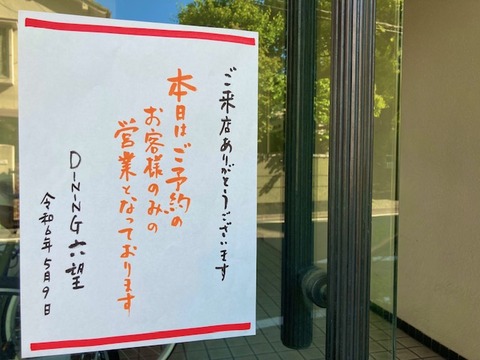 ご来店ありがとうございます
本日はご予約の
お客様のみの
営業となっております
DINING 六望
令和6年5月9日